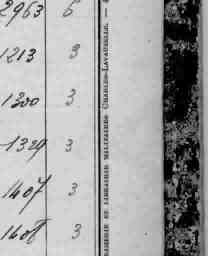 2963 6
1213 3
1300 3
1329 3
1407 3
1408 3
IMPRIMERIE ET LIBRAIRIE MILITAIRES CHARLES-LAVAUZELLE. —